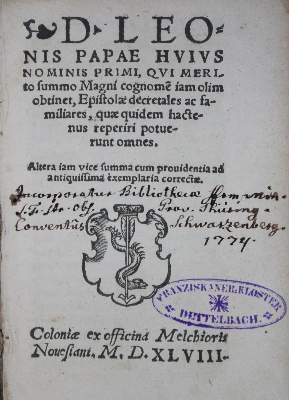 D. LEO-
NIS PAPAE HVIVS
NOMINIS PRIMI, QVI MERI-
to summo Magni cognomē iam olim
obtinet, Epistolæ decretales ac fa-
miliares, quæ quidem hacte-
nus reperiri potue-
runt omnes.
Altera iam vice summa cum prouidentia ad
antiquissima exemplaria correctæ.
Incorporatus Bibliothecæ
Conventûs Prov. Thüring.
Schwarzenberg.
1774
FRANZISKANER-KLOSTER
DETTELBACH.
Coloniæ ex officina Melchioris
Nouesiani, M. D. XLVIII.